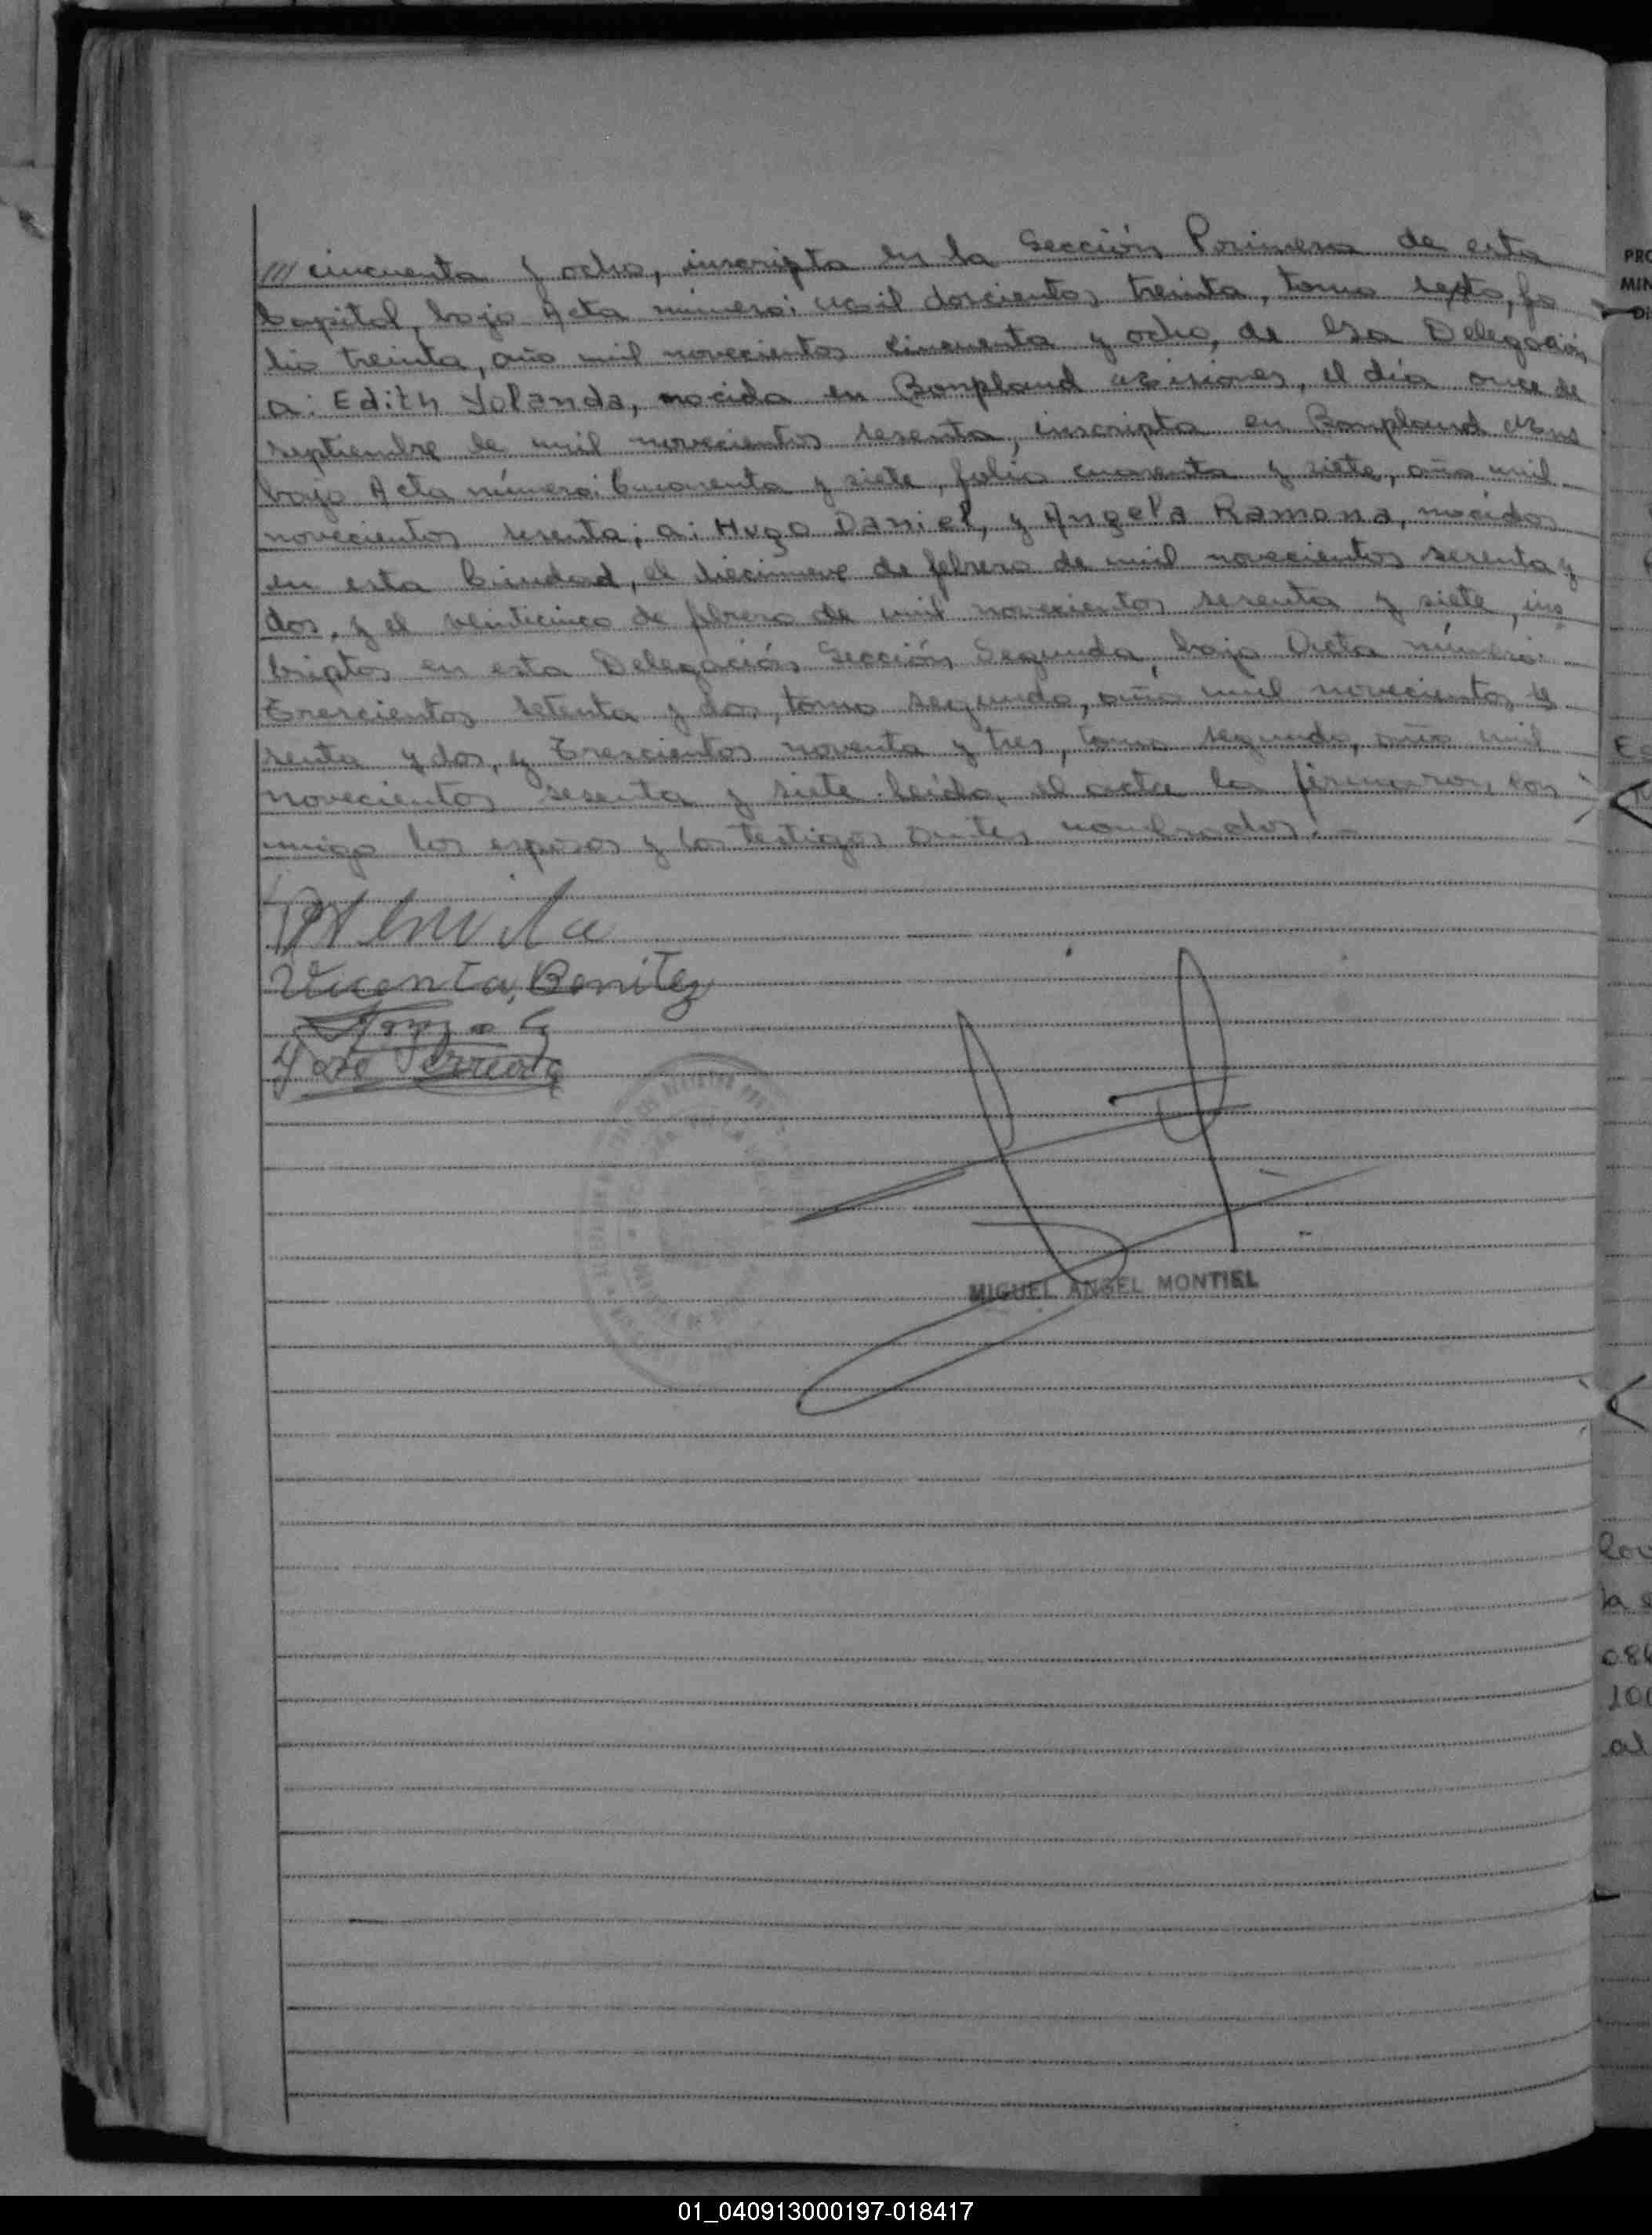 /// cincuenta y ocho, inscripta en la Sección Primera de esta
Capital, bajo Acta número: mil doscientos treinta, tomo sexto, fo
lio treinta, año mil novecientos cincuenta y ocho, de esa Delegación
a: Edith Yolanda, nacida en Bonpland Misiones, el día once de
septiembre de mil novecientos sesenta, inscripta en Bonpland Mnes
bajo Acta número: Cuarenta y siete, folio cuarenta y siete, año mil
novecientos sesenta; a: Hugo Daniel, y Angela Ramona, nacidos
en esta Ciudad, el diecinueve de febrero de mil novecientos sesenta y
dos, y el veinticinco de febrero de mil novecientos sesenta y siete, ins
criptos en esta Delegación Sección Segunda, bajo Acta número:
Trescientos setenta y dos, tomo segundo, año mil novecientos se
senta y dos, y Trescientos noventa y tres, tomo segundo, año mil
novecientos sesenta y siete. Leída el acta la firmaron con
migo los esposos y los testigos antes nombrados.-
Vicenta Benitez
José Ferreira
MIGUEL ANGEL MONTIEL
PRO
MIN
DI
la s
084
100
al
01_040913000197-018417